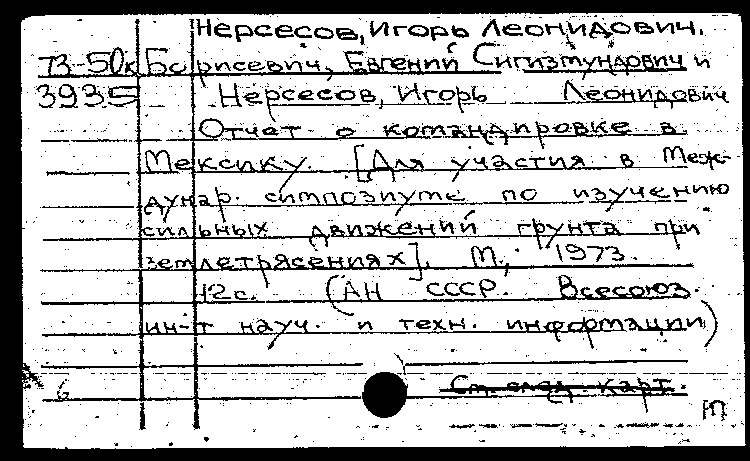 Нерсесов, Игорь Леонидович.
73-50к Борисевич, Евгений Сигизмундович и
3935 Нерсесов, Игорь Леонидович
Отчет о командировке в
Мексику. [Для участия в Меж-
дунар. симпозиуме по изучению
сильных движений грунта при
землетрясениях]. М., 1973.
12с. (АН СССР. Всесоюз.
ин-т науч. и техн. информации)
См. след. карт.
6